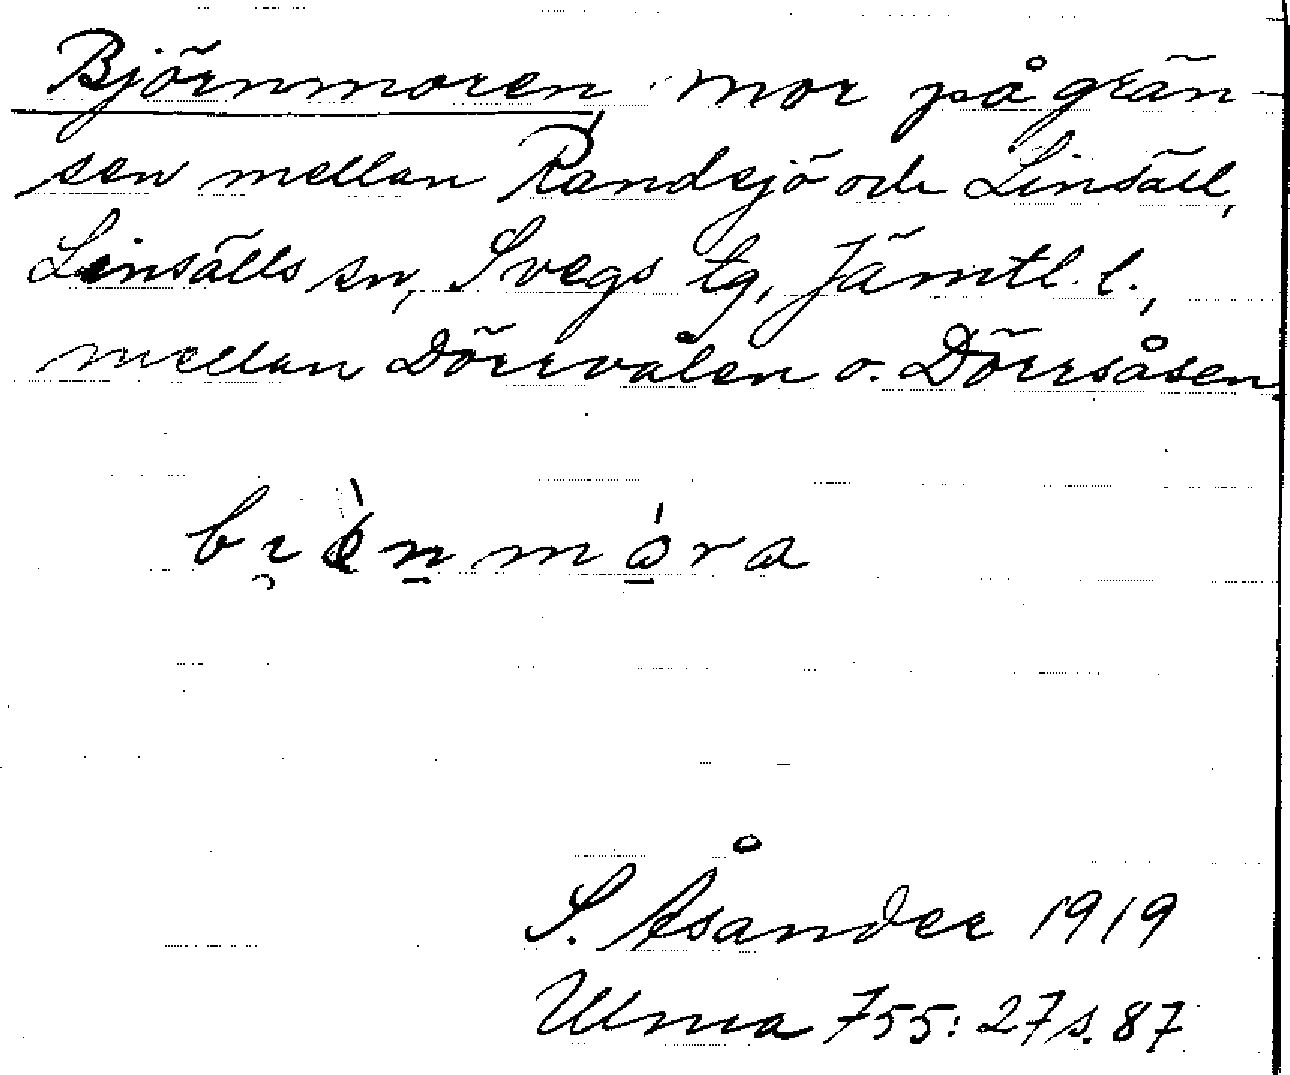 Björnmoren, mor på grän-
sen mellan Randsjö och Linsäll,
Linsälls sn, Svegs tg, Jämtl. l.,
mellan Dörrvålen o. Dörrsåsen
S. Åsander 1919
Ulma 755: 27 s. 87